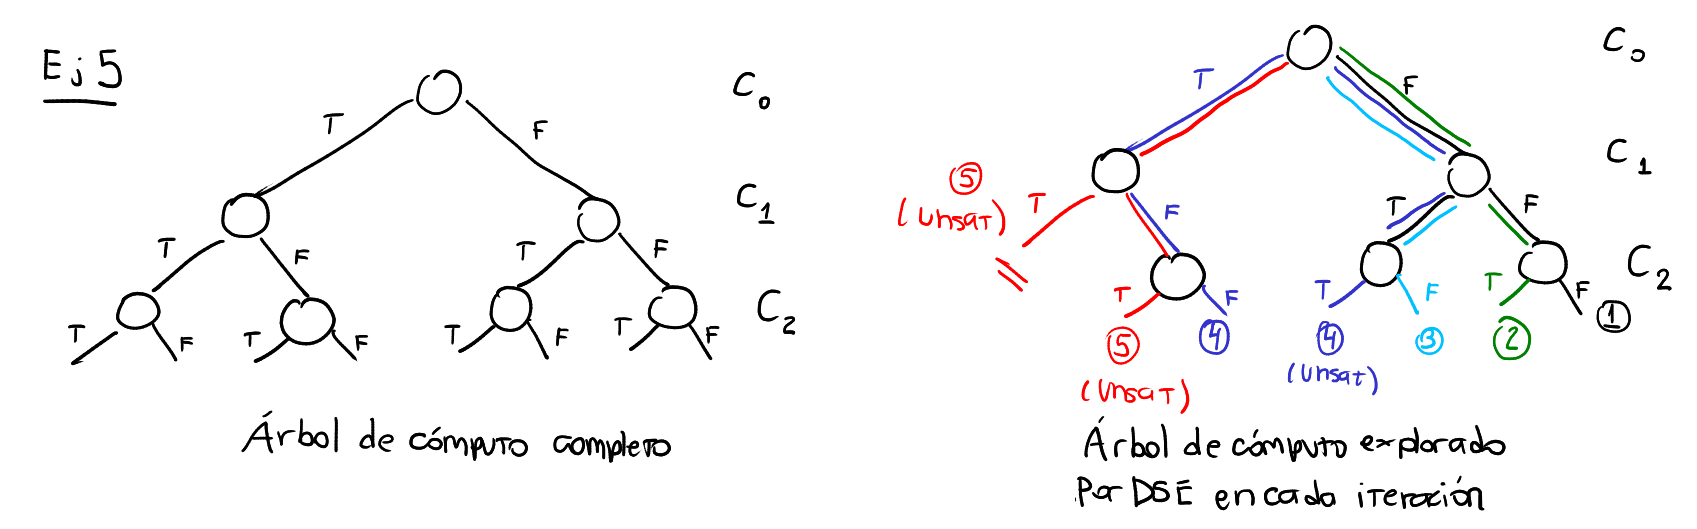 Ej 5
C₀
T F
C₁
T F T F
C₂
T F T F T F T F
Árbol de cómputo completo
C₀
T F
C₁
⑤
(unsat)
T F T F
C₂
T F T F T F
⑤ ④ ④ ③ ② ①
(unsat) (unsat)
Árbol de cómputo explorado
Por DSE en cada iteración